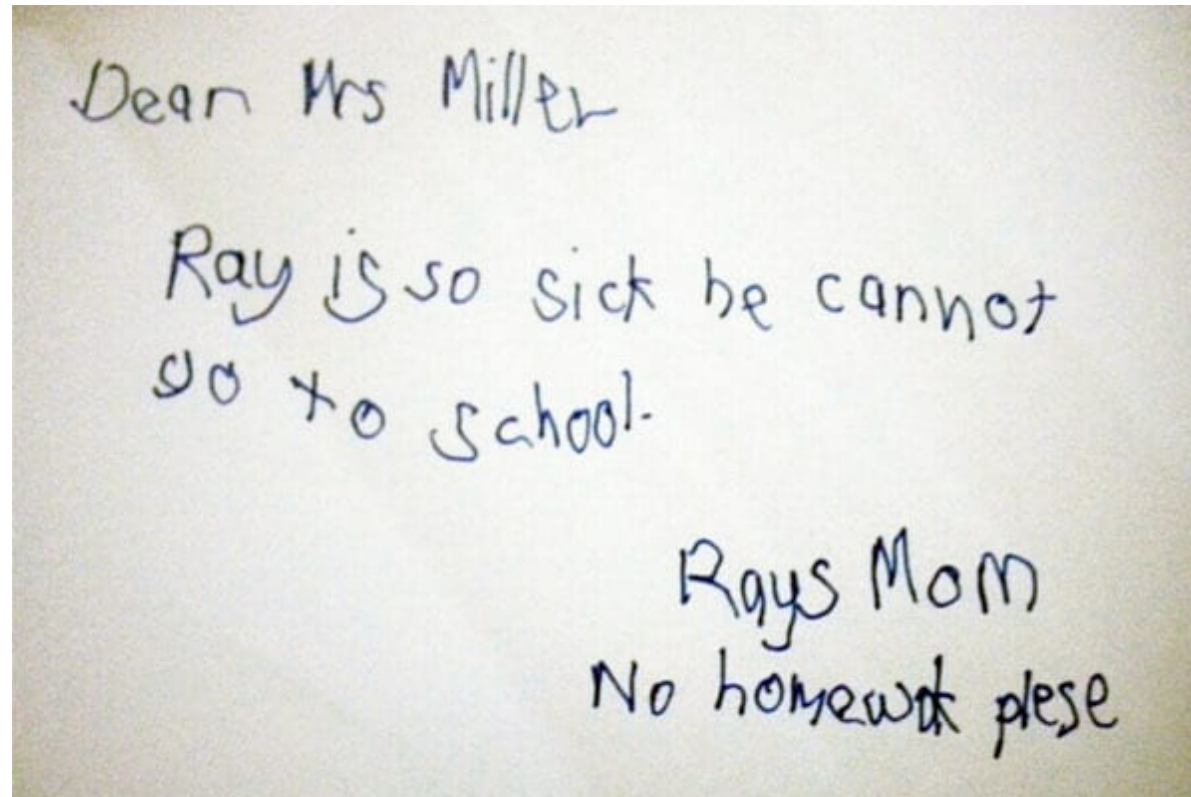 Dear Mrs Miller
Ray is so sick he cannot
go to school.
Rays Mom
No homewok plese